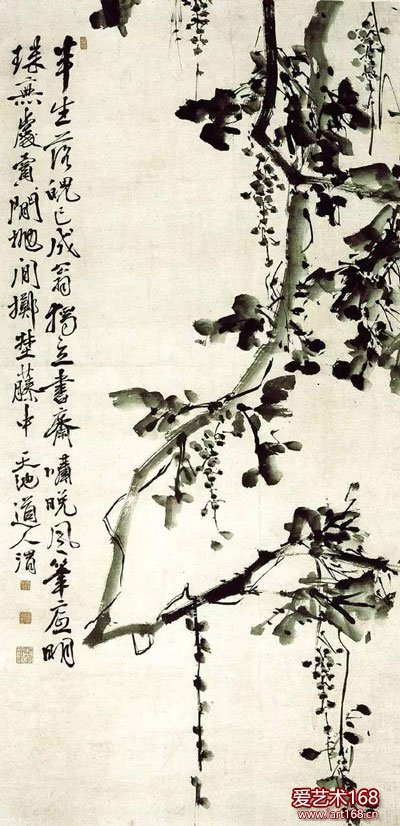 半生落魄已成翁獨立書齋嘯晚風筆底明
珠無處賣閒抛閒擲埜藤中天池道人渭
爱艺术168
www.art168.cn